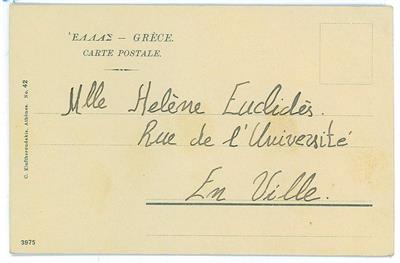 ἙΛΛΑΣ – GRÈCE.
CARTE POSTALE.
Mlle Helène Euclidès.
Rue de l'Université
En Ville.
C. Eleftheroudakis, Athènes. No. 42
3975